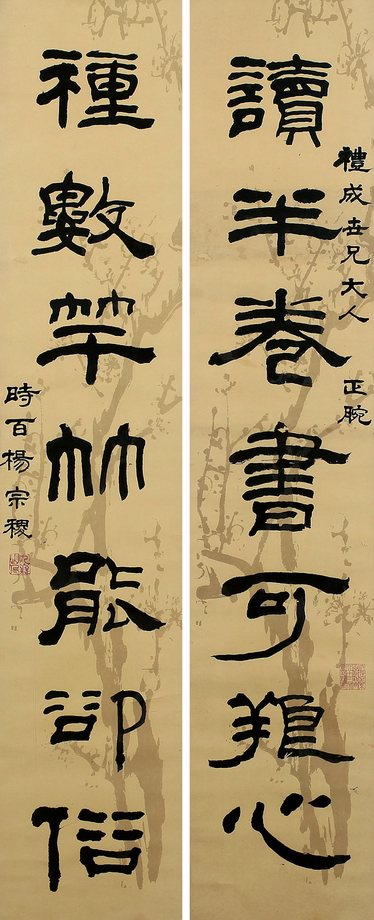 讀半卷書可猒心
禮成世兄大人 正腕
種數竿竹能卻俗
時百楊宗稷